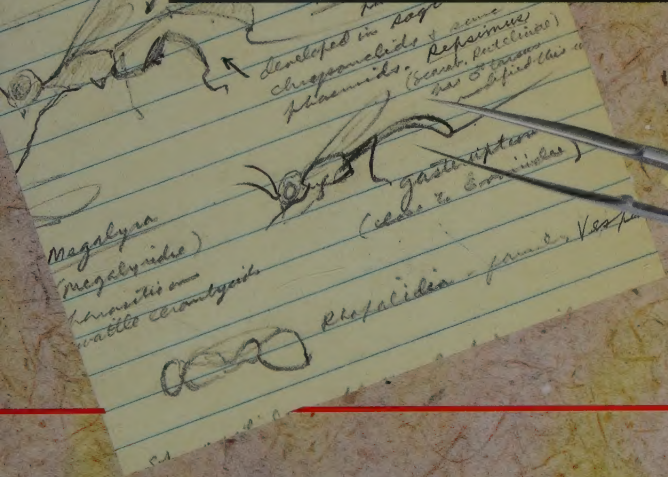 developed in sage
chrysomelids & some
phasmids. Repsimus
(Scarab. Rutelinae)
has
modified this
gasteruption
(close to
Megalyra
(Megalyridae)
parasitic on
wattle cerambycids
Rhopalidia - family Vespi